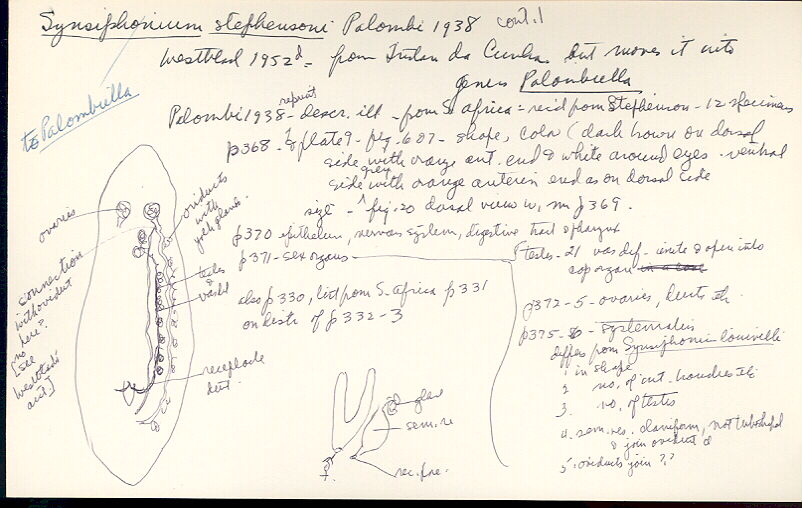 Synsiphonium stephensoni Palombi 1938 cont.1
Westblad 1952d - from Tristan da Cunha but moves it into
genus Palombiella
to Palombiella
Palombi 1938 - descr. ill - from S. Africa = recd from Stephenson - 12 specimens
p368 - & plate 9 - fig. 6 & 7 - shape, color (dark brown on dorsal
side with orange ant. end & white around eyes - ventral
side grey with orange anterior end as on dorsal side
size - fig. 20 dorsal view p369.
p370 epithelium, nervous system, digestive tract & pharynx
p371 - sex organs
testes - 21 vas def. - unite & open into
cop organ
also p330, list from S. Africa p331
on distr of p332-3
p372-5 - ovaries, ducts etc.
p375-6 - systematics
differs from Synsiphonium
1. in shape
2. no. of
3. no. of testes
4. sem. ves. claviform, not
& join oviduct
5. oviducts join ??
ovaries
oviducts
with
yolk glands
connection
with oviduct
no
here?
[see
Westblad's
testes
vas def
duct
gland
sem. ve